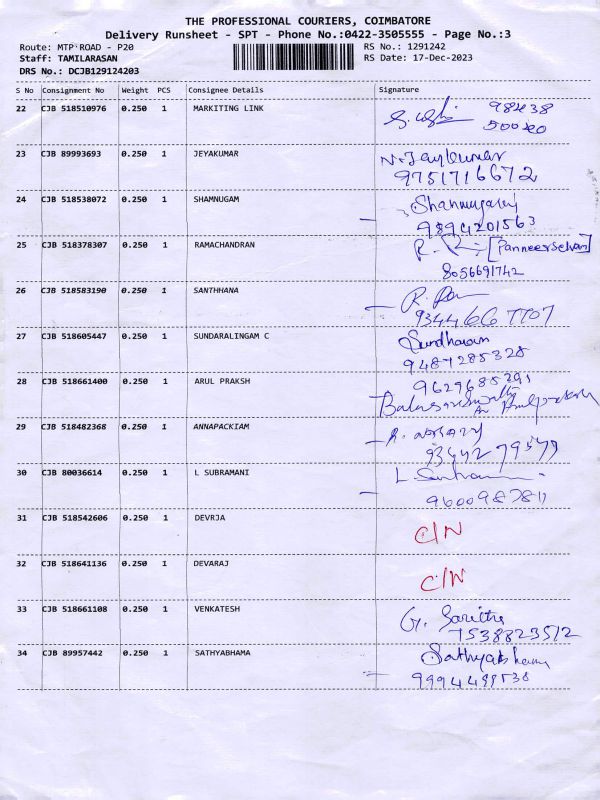 THE PROFESSIONAL COURIERS, COIMBATORE
Delivery Runsheet - SPT - Phone No.:0422-3505555 - Page No.:3
Route: MTP ROAD - P20 RS No.: 1291242
Staff: TAMILARASAN RS Date: 17-Dec-2023
DRS No.: DCJB129124203
S No Consignment No Weight PCS Consignee Details Signature
22 CJB 518510976 0.250 1 MARKITING LINK
23 CJB 89993693 0.250 1 JEYAKUMAR N. Jeykumar
9751716672
24 CJB 518538072 0.250 1 SHAMNUGAM Shanmugam
9894201563
25 CJB 518378307 0.250 1 RAMACHANDRAN [Panneerselvam]
8056691742
26 CJB 518583190 0.250 1 SANTHHANA
9344667707
27 CJB 518605447 0.250 1 SUNDARALINGAM C Sundharam
9487285328
28 CJB 518661400 0.250 1 ARUL PRAKSH 9629685291
29 CJB 518482368 0.250 1 ANNAPACKIAM
9344279579
30 CJB 80036614 0.250 1 L SUBRAMANI
9600987811
31 CJB 518542606 0.250 1 DEVRJA C/N
32 CJB 518641136 0.250 1 DEVARAJ C/N
33 CJB 518661108 0.250 1 VENKATESH G. Saritha
7538823512
34 CJB 89957442 0.250 1 SATHYABHAMA Sathyabhama
9994499538